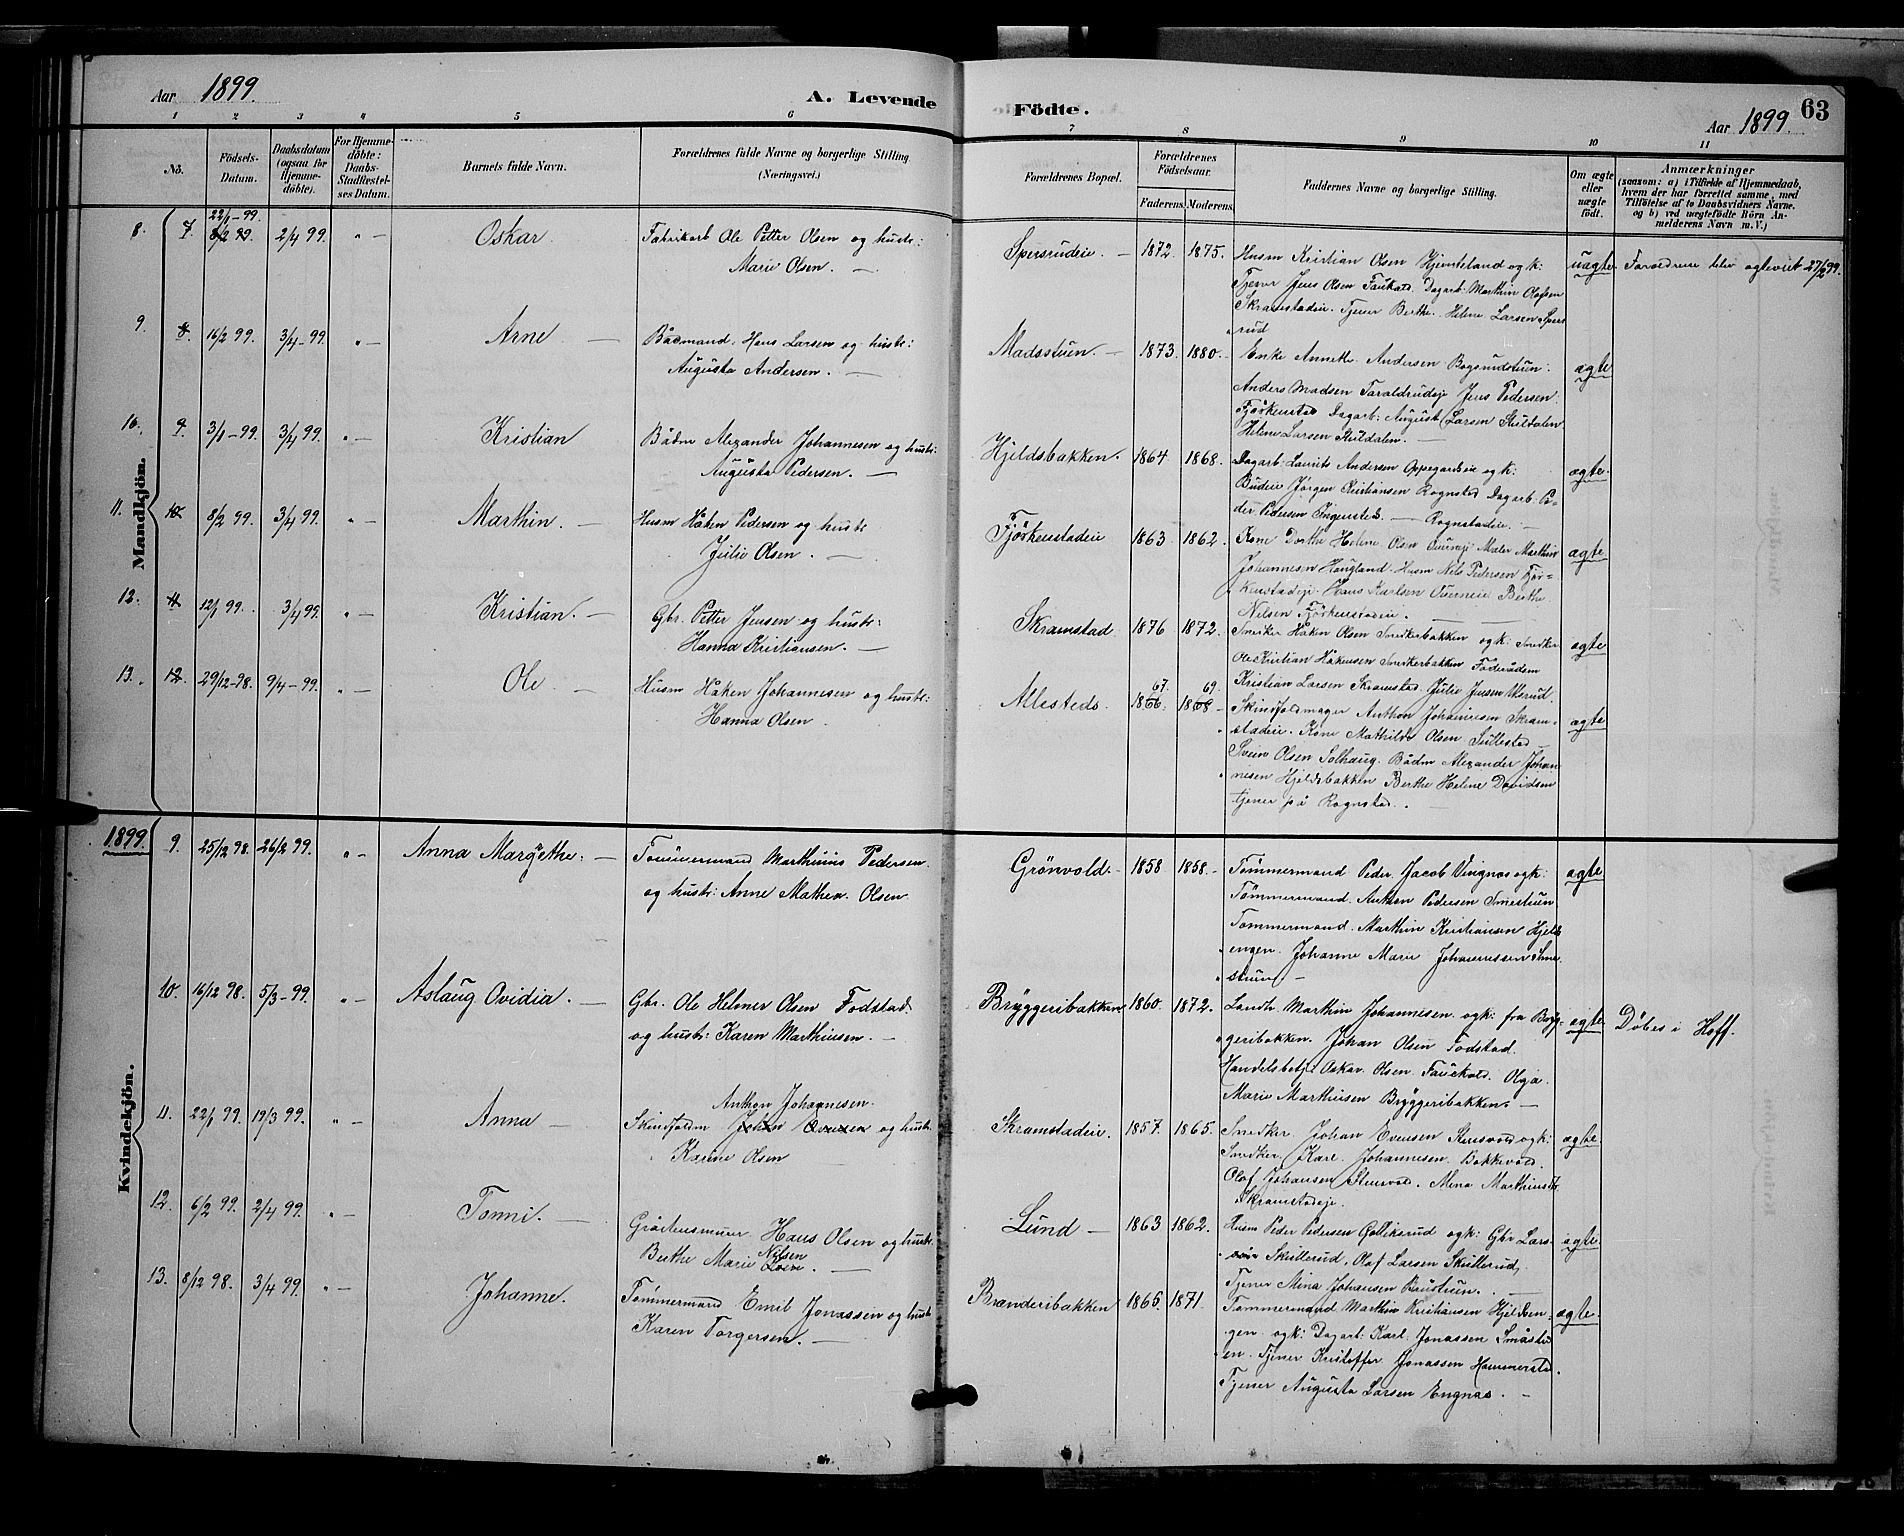 Aar 1899.
A. Levende Födte.
Aar 1899.
63
1 2 3 4 5 6 7 8 9 10 11
No.
Födsels-Datum.
Daabsdatum (ogsaa for Hjemmedöbte).
For Hjemmedöbte: Daabs-Stadfæstelses Datum.
Barnets fulde Navn.
Forældrenes fulde Navne og borgerlige Stilling. (Næringsvei.)
Forældrenes Bopæl.
Forældrenes Födselsaar.
Faderens. Moderens.
Faddernes Navne og borgerlige Stilling.
Om ægte eller uægte födt.
Anmærkninger
(saasom: a) i Tilfælde af Hjemmedaab, hvem der har forrettet samme, med Tilföielse af to Daabsvidners Navne, og b) ved uægtefödte Börn Anmelderens Navn m. V.)
Mandkjön.
8. 7. 22/1-99. 2/4 99. " — Oskar. Fabrikarb Ole Petter Olsen og hustr:
Marie Olsen. —
Spersrudeie. — 1872. 1875. Husm Kristian Olsen Hjemteland og k:
Tjener Jens Olsen Faukald. Dagarb. Marthin Olafsen
Skramstadeie. Tjener Berthe. Helene Larsen Spers
rud
uægte Foreldrene blev ægteviet 27/2 99.
9. 8. 16/2 99. 3/4-99. " — Arne — Bådmand: Hans Larsen og hustr:
Augusta Andersen. —
Madsstuen. — 1873. 1880. Enke Annette Andersen Bogsrudstuen.
Anders Madsen Taraldrudeje Jens Pedersen
Fjörkenstad Dagarb: August Larsen Skuldalen
Helene Larsen Skuldalen. —
ægte
10. 9. 3/1-99. 3/4 99. " — Kristian Bådm Alexander Johannesen og hustr:
Augusta Pedersen. —
Hjeldsbakken. 1864 1868. Dagarb. Laurits Andersen Oppegardeie og k:
Budeie Jørgen Kristiansen Rognstad Dagarb. Pe-
der Pedersen Engensted. — Rognstadeie. —
ægte.
11. 10. 8/2 99. 3/4 99. " — Marthin. — Husm Håken Pedersen og hustr
Julie Olsen. —
Fjörkenstadeie 1863 1862. Kone Dorthe Helene Olsen Maler Marthin
Johannesen Haugland. Husm Nils Pedersen Fjör-
kenstadeje. Hans Karlsen Berthe
Nilsen Fjörkenstadeie. —
ægte
12. 11. 12/1 99. 3/4 99. " — Kristian. — Gbr. Petter Jensen og hustr:
Hanna Kristiansen. —
Skramstad 1876 1872. Snedker Håken Olsen Snedkerbakken og k: Snedker
Ole Kristian Håkensen Snedkerbakken Föderådsm
Kristian Larsen Skramstad. Julie Jensen
ægte
13. 12. 29/12-98. 9/4-99. " — Ole — Husm Håken Johannesen og hustr:
Hanna Olsen.
Allesteds. 1866. 67. 1868 69. Skindfoldmager Anthon Johannesen Skram-
stadeie. Kone Mathilde Olsen Sullestad —
Svein Olsen Solhaug. Bådm Alexander Johan
nesen Hjeldsbakken Berthe Helene Davidsen
tjener på Rognstad. —
ægte
1899.
Kvindekjön.
9. 25/12 98. 26/2 99. " — Anna Margrethe. — Tömmermand Marthinus Pedersen
og hustr: Anne Mathea Olsen.
Grönvold. — 1858 1858. — Tömmermand Peder Jacob Vingnæs og k:
Tömmermand. Anthon Pedersen Smestuen
Tömmermand. Marthin Kristiansen Hjelds
engen. Johanne Marie Johannessen Sme
stuen. —
ægte
10. 16/12 98. 5/3-99. " — Aslaug Ovidia. — Gbr. Ole Helmer Olsen Fodstad
og hustr: Karen Marthinsen. —
Bryggeribakken 1860. 1872. Landh. Marthin Johannesen. og k: fra Bryg-
geribakken. Johan Olsen Fodstad.
Handelsbetj. Oskar Olsen Faukald. Olga
Marie Marthinsen Bryggeribakken. —
ægte Döbes i Hoff.
11. 22/1 99. 19/3 99. " — Anna — Anthon Johannesen.
Skindfoldm Johan Evensen og hustr.
Karine Olsen
Skramstadeie. 1857. 1865. Snedker. Johan Evensen Stensvold og k:
Snedker Karl. Johannesen. Bakkevold.
Olaf Johansen Stensvold. Mina Marthinsdr
Skramstadeje.
ægte
12. 6/2 99. 2/4 99. " — Tonni. — Gråstensmurer Hans Olsen og hustr.
Berthe Marie Nilsen —
Lund — 1863 1862. Husm Peder Pedersen Gottikerud og k: Gbr Lars
Skullerud, Olaf Larsen Skullerud,
Tjener Mina Johansen
ægte
13. 8/12 98. 3/4 99. " — Johanne. Tömmermand Emil Jonassen og hustr
Karen Torgersen. —
Brænderibakken 1865. 1871. Tömmermand Marthin Kristiansen Hjeldsen-
gen. og k: Dagarb: Karl. Jonassen Småstu
en. Tjener Kristoffer Jonassen Hammerstad.
Tjener Augusta Larsen Engnæs. —
ægte.